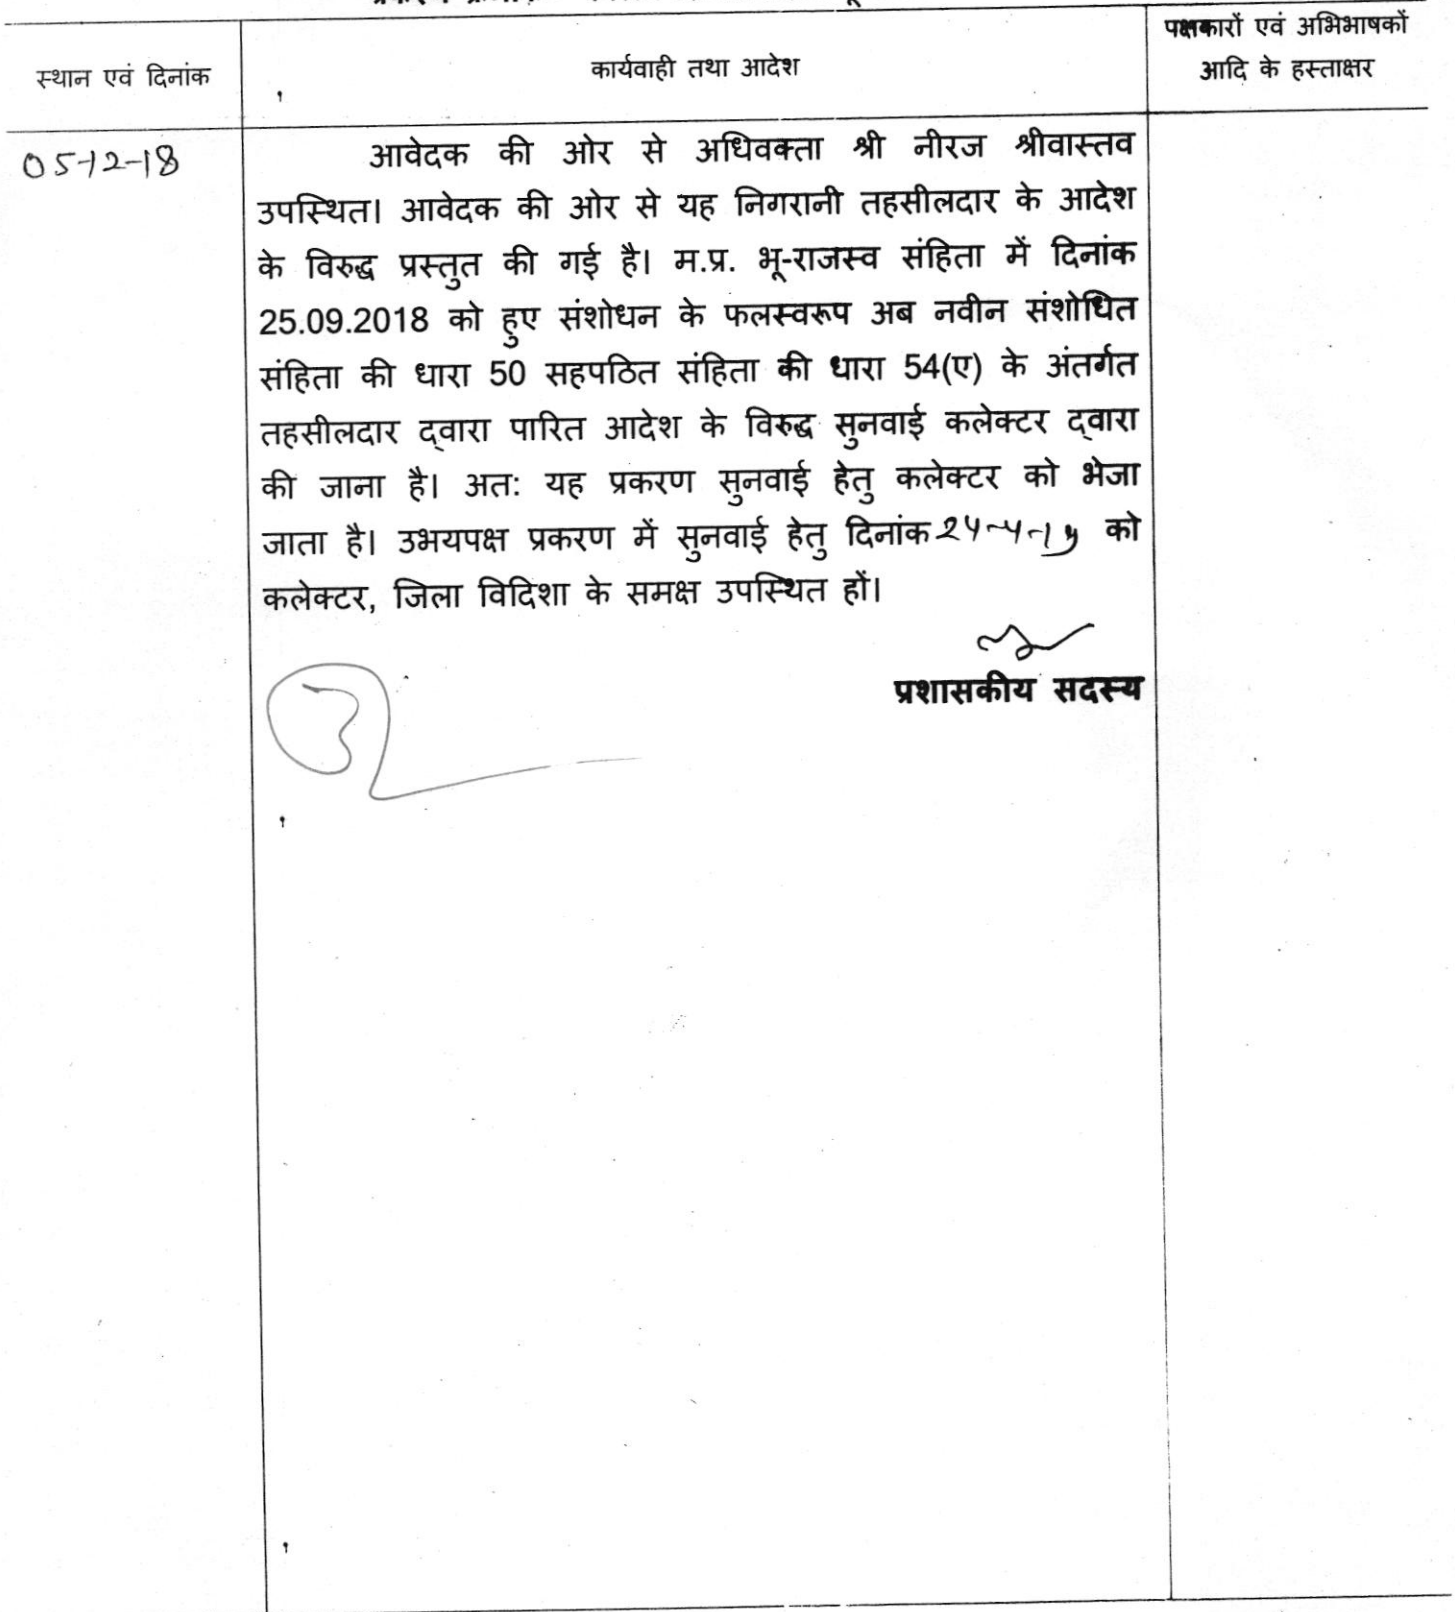 स्थान एवं दिनांक
कार्यवाही तथा आदेश
पक्षकारों एवं अभिभाषकों
आदि के हस्ताक्षर
05-12-18
आवेदक की ओर से अधिवक्ता श्री नीरज श्रीवास्तव
उपस्थित। आवेदक की ओर से यह निगरानी तहसीलदार के आदेश
के विरुद्ध प्रस्तुत की गई है। म.प्र. भू-राजस्व संहिता में दिनांक
25.09.2018 को हुए संशोधन के फलस्वरूप अब नवीन संशोधित
संहिता की धारा 50 सहपठित संहिता की धारा 54(ए) के अंतर्गत
तहसीलदार द्वारा पारित आदेश के विरुद्ध सुनवाई कलेक्टर द्वारा
की जाना है। अतः यह प्रकरण सुनवाई हेतु कलेक्टर को भेजा
जाता है। उभयपक्ष प्रकरण में सुनवाई हेतु दिनांक को
कलेक्टर, जिला विदिशा के समक्ष उपस्थित हों।
प्रशासकीय सदस्य